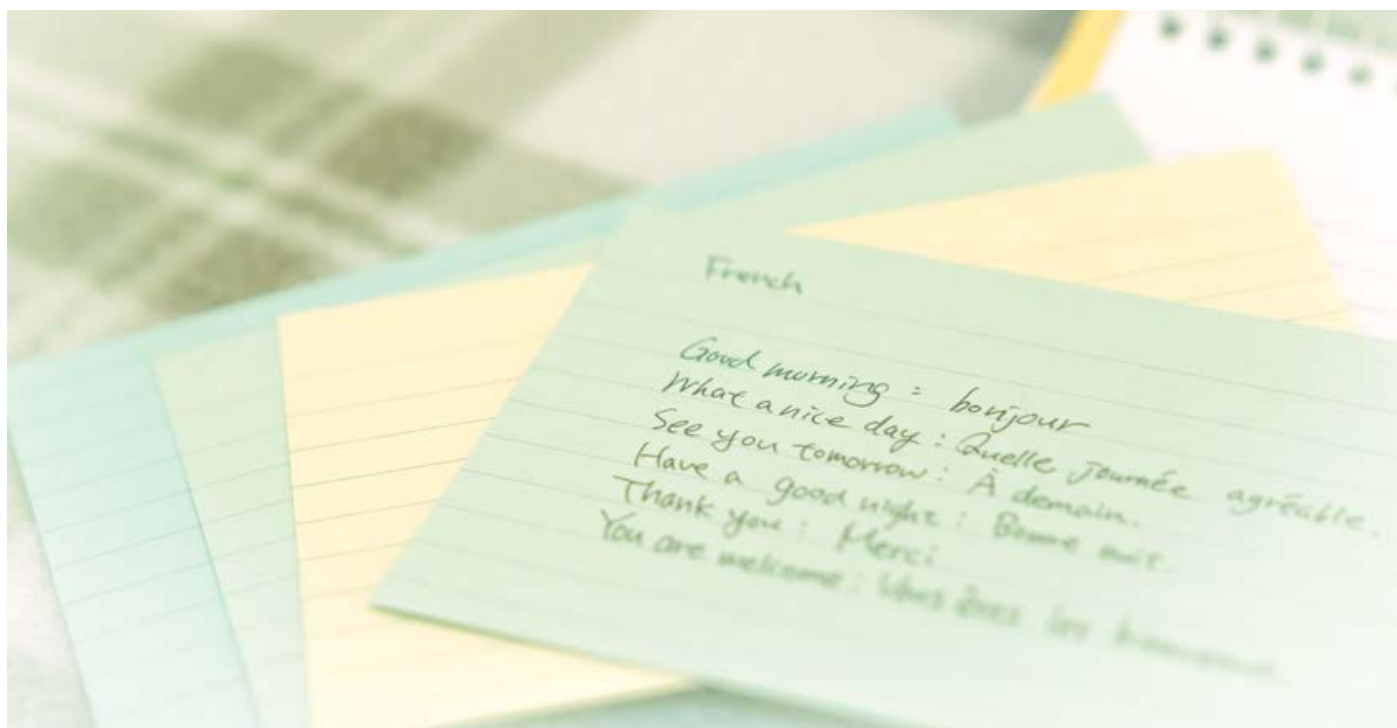 French
Good morning : bonjour
What a nice day : Quelle journée agréable.
See you tomorrow : À demain.
Have a good night : Bonne nuit.
Thank you : Merci
You are welcome : Vous êtes les